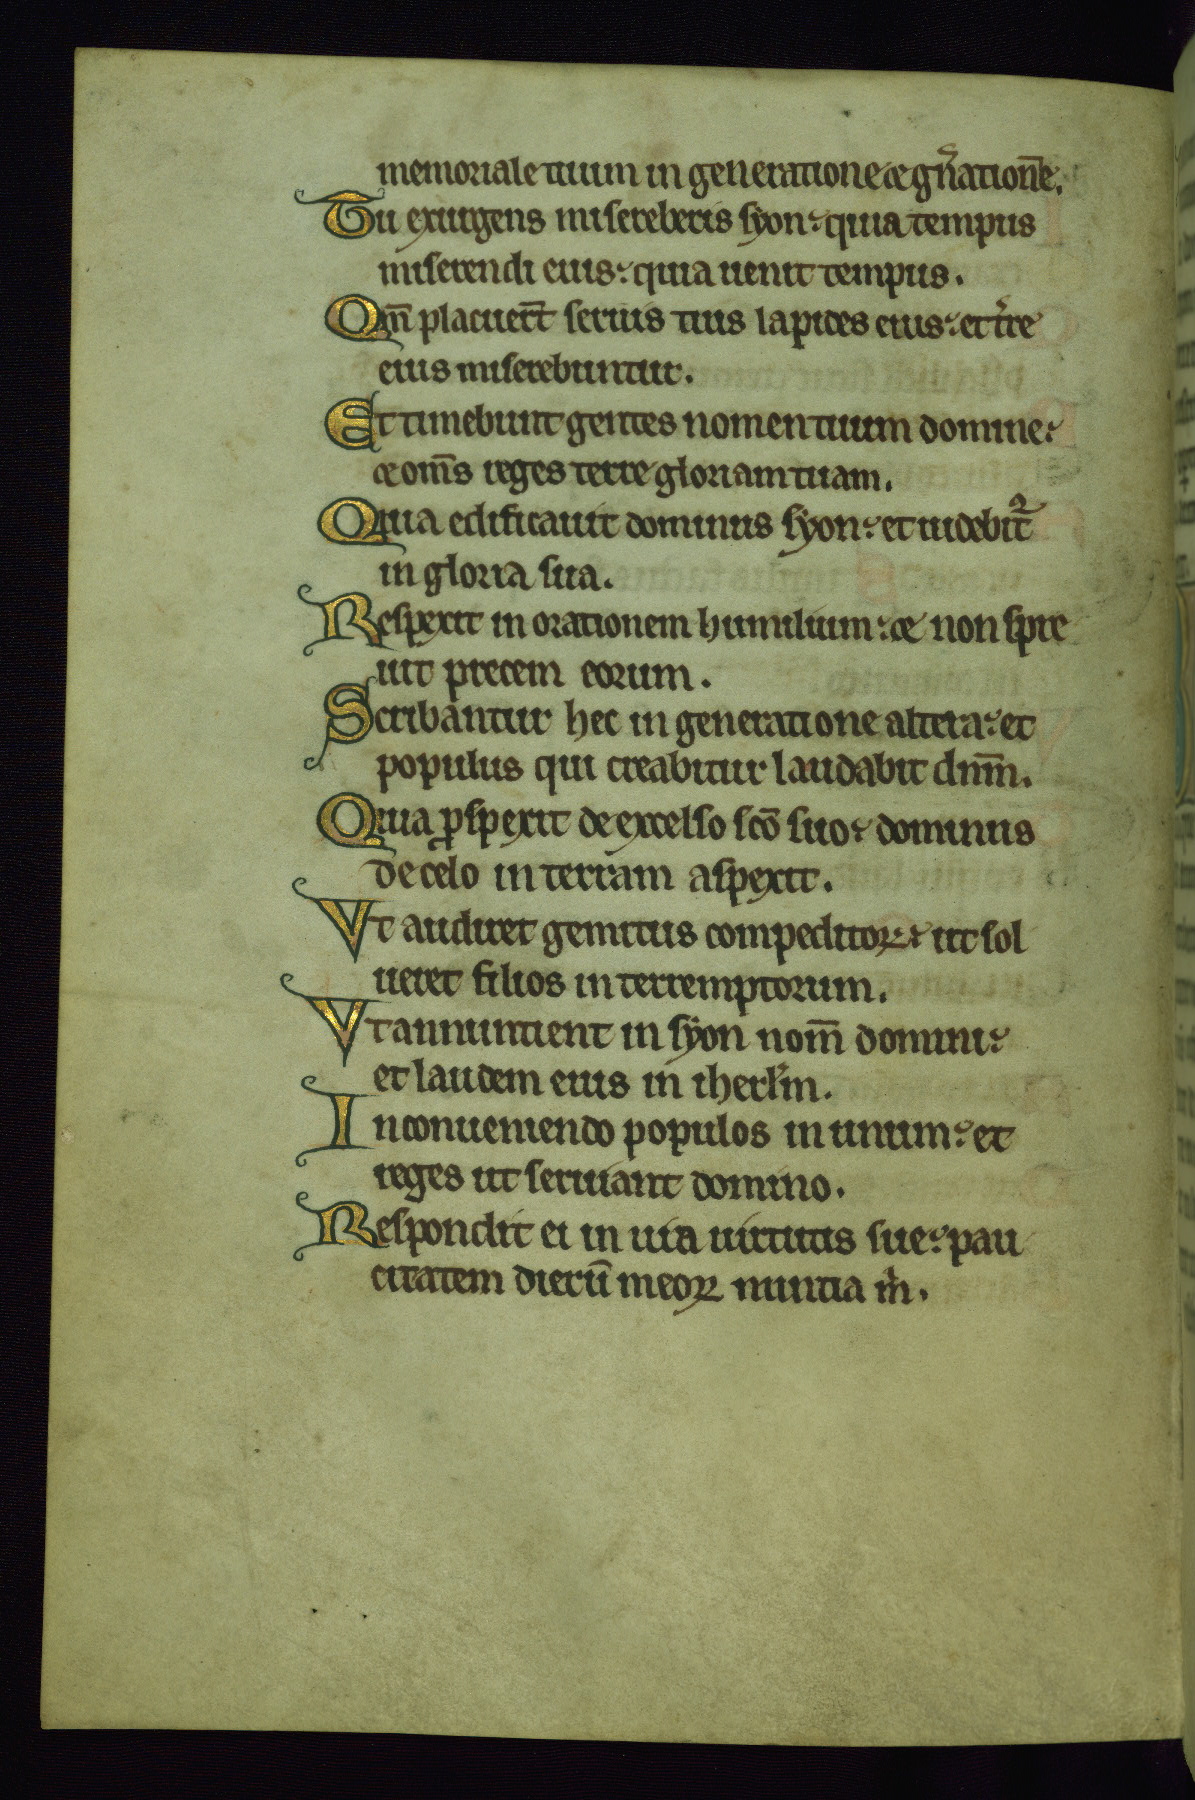 memoriale tuum in generatione & gn̄ationē.
Tu exurgens misereberis syon: quia tempus
miserendi eius: quia uenit tempus.
Qm̄ placuert̄ seruis tuis lapides eius: et tr̄re
eius miserebuntur.
Et timebunt gentes nomen tuum domine:
& om̄s reges terre gloriam tuam.
Quia edificauit dominus syon: et uidebit᷑
in gloria sua.
Respexit in orationem humilium: & non spre
uit precem eorum.
Scribantur hec in generatione altera: et
populus qui creabitur laudabit dnm̄.
Quia ꝓspexit de excelso scō suo: dominus
de celo in terram aspexit.
Vt audiret gemitus compeditoꝝ: ut sol
ueret filios interremptorum.
Vt annuntient in syon nom̄ domini:
et laudem eius in iherl̄m.
In conueniendo populos in unum: et
reges ut seruiant domino.
Respondit ei in uia uirtutis sue: pau
citatem dierū meoꝝ nuntia m̍.